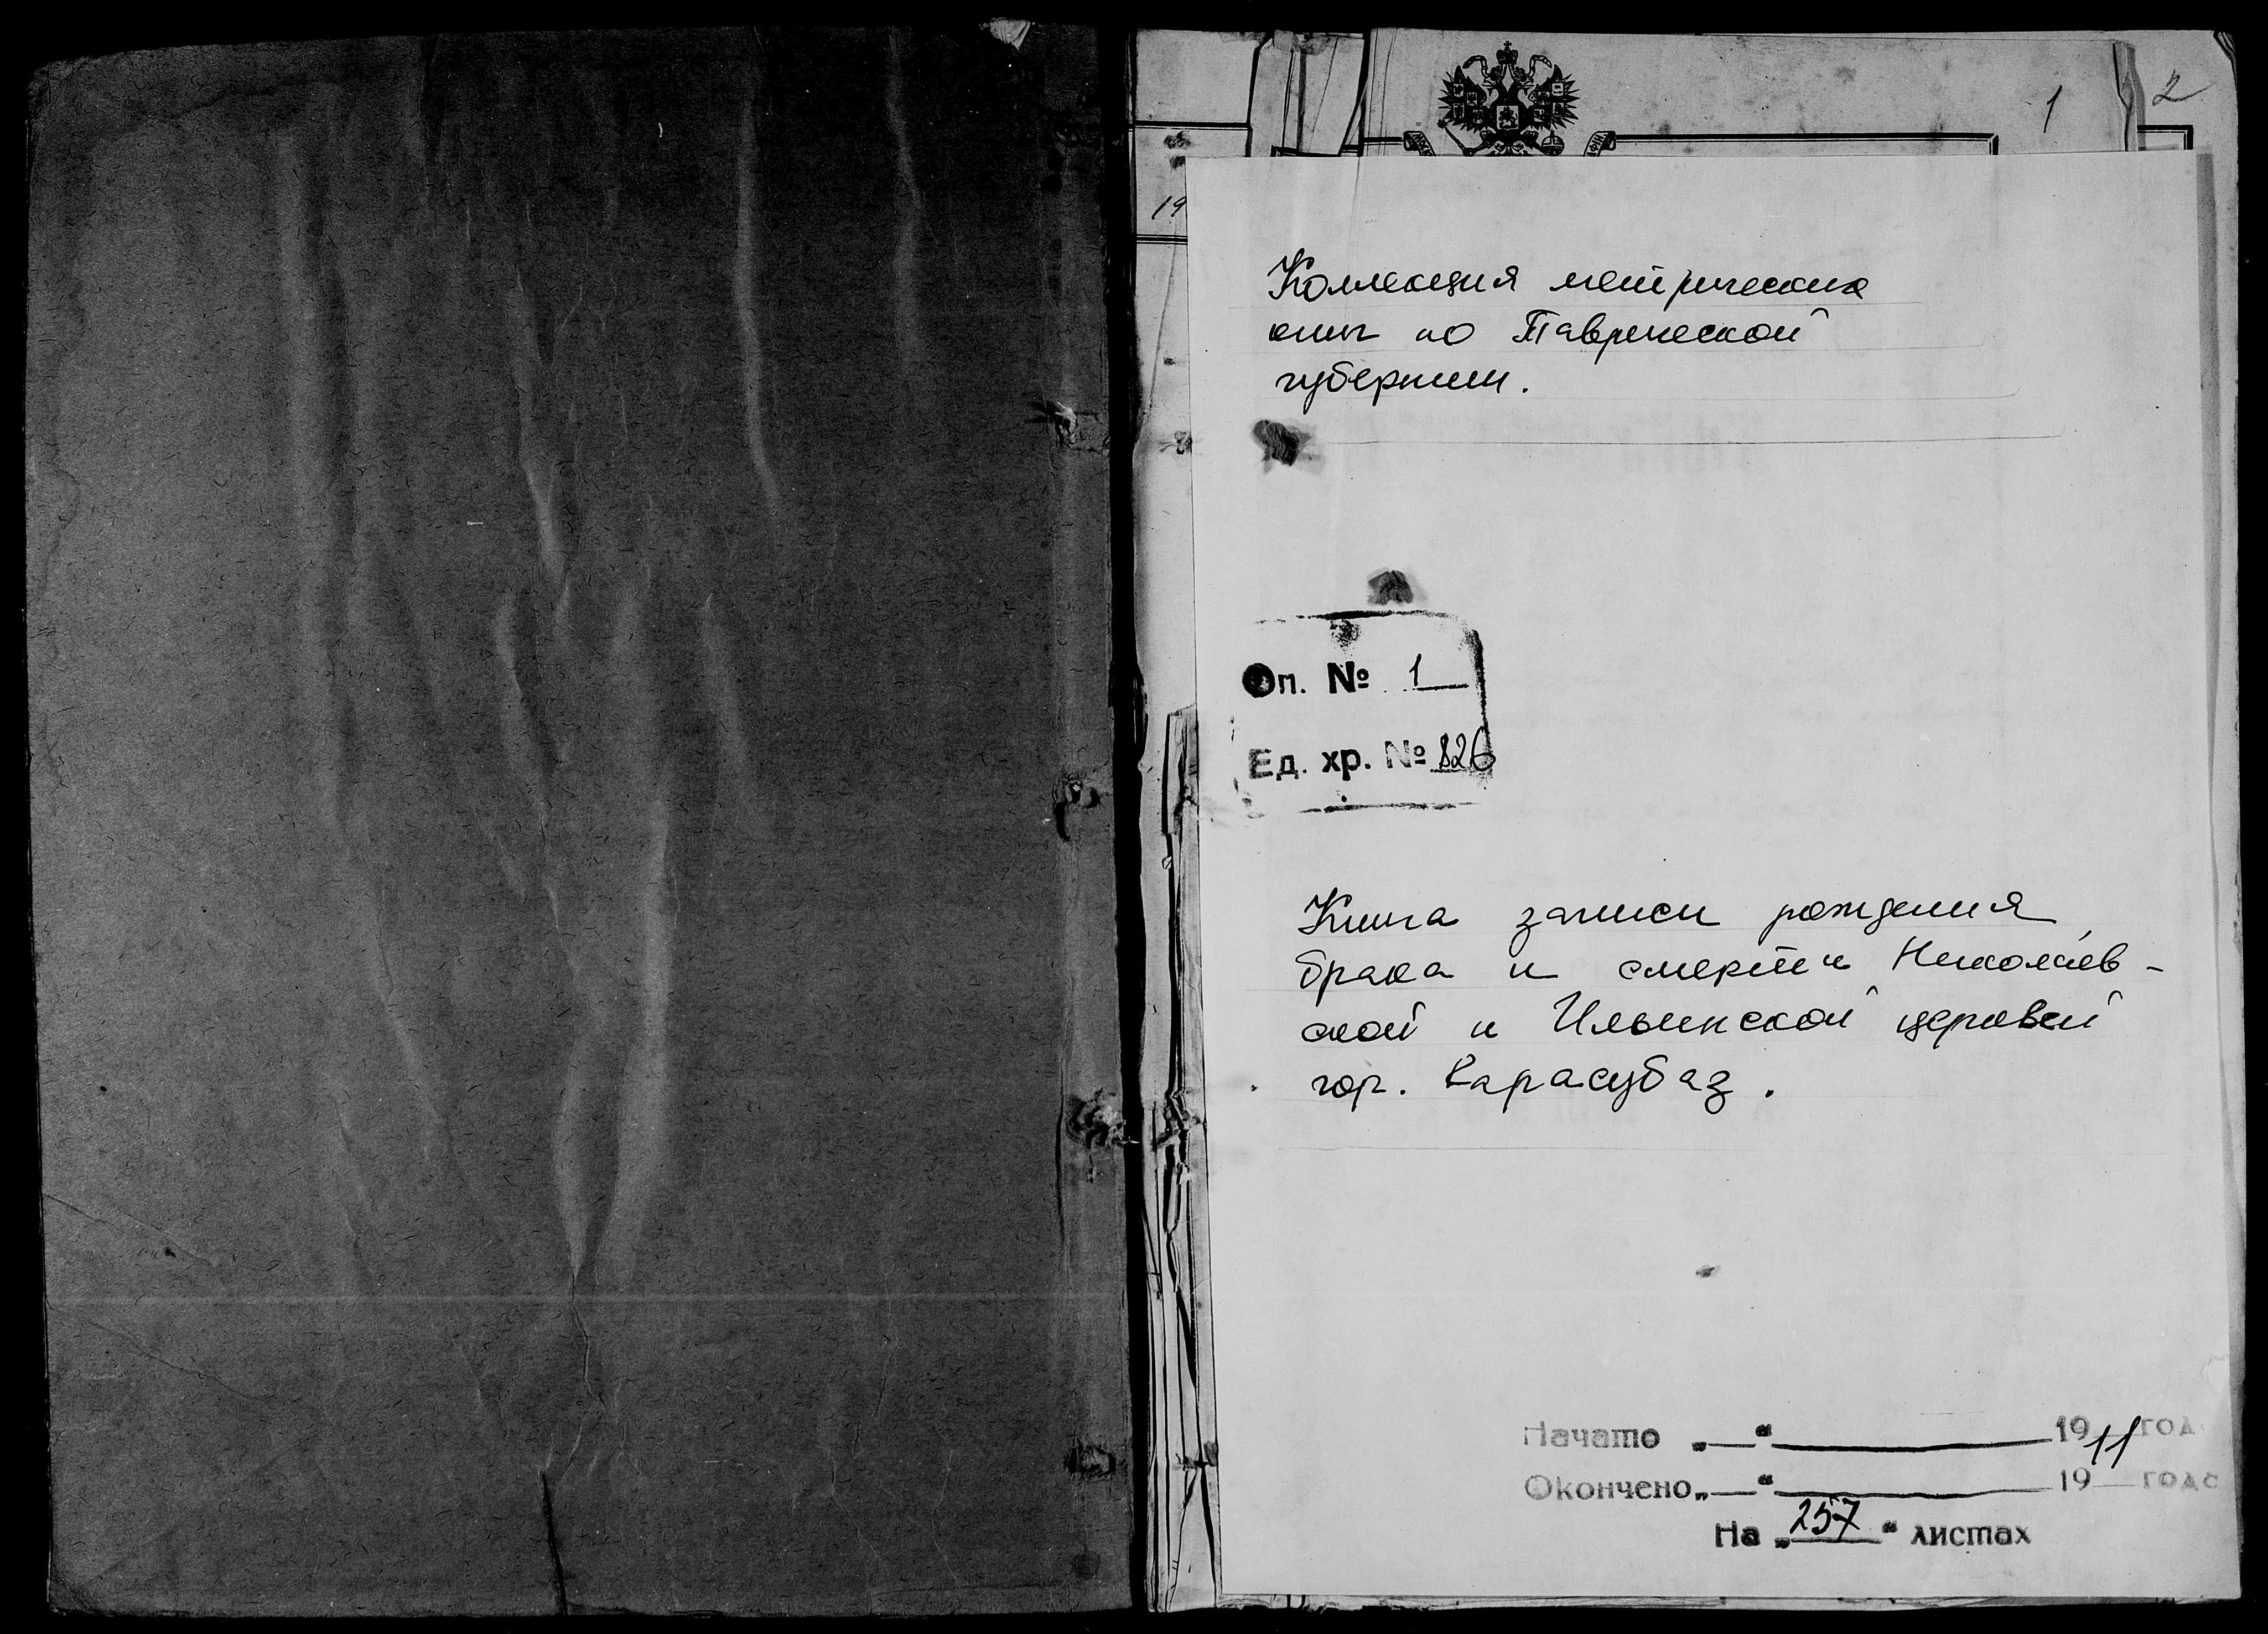 1
2
19
Коллекция метрических
книг по Таврической
губернии.
Оп. № 1
Ед. хр. № 826
Книга записи рождения,
брака и смерти Николаев-
ской и Ильинской церквей
гор. Карасубаз.
Начато „—“ 1911 год
Окончено „—“ 19 года
На „257“ листах